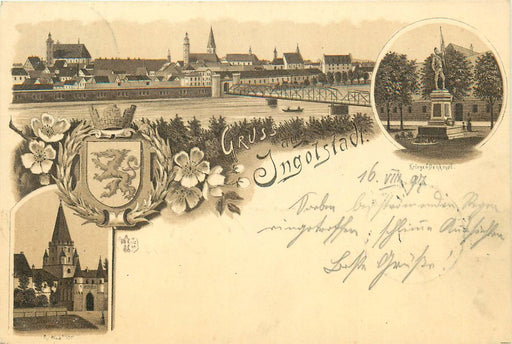 Gruss aus
Ingolstadt.
Kriegerdenkmal.
16. VIII. 97.
Soeben bei strömendem Regen
eingetroffen; schlimme Aussichten
Beste Grüße!